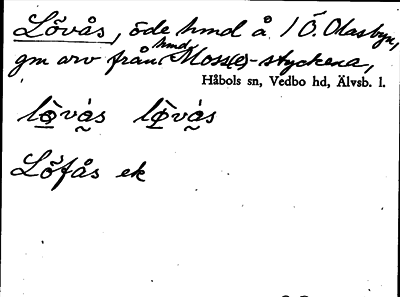 Lövås, öde hmd å 1/ Ö. Olasbyn,
gm arv från hmd Moss(e)-styckena,
Håbols sn, Vedbo hd, Älvsb. l.
Löfås ek